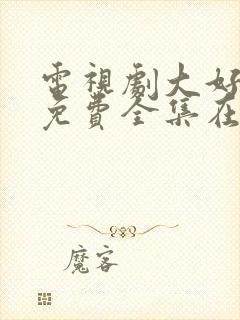 電視劇大好
免費全集在
魔客